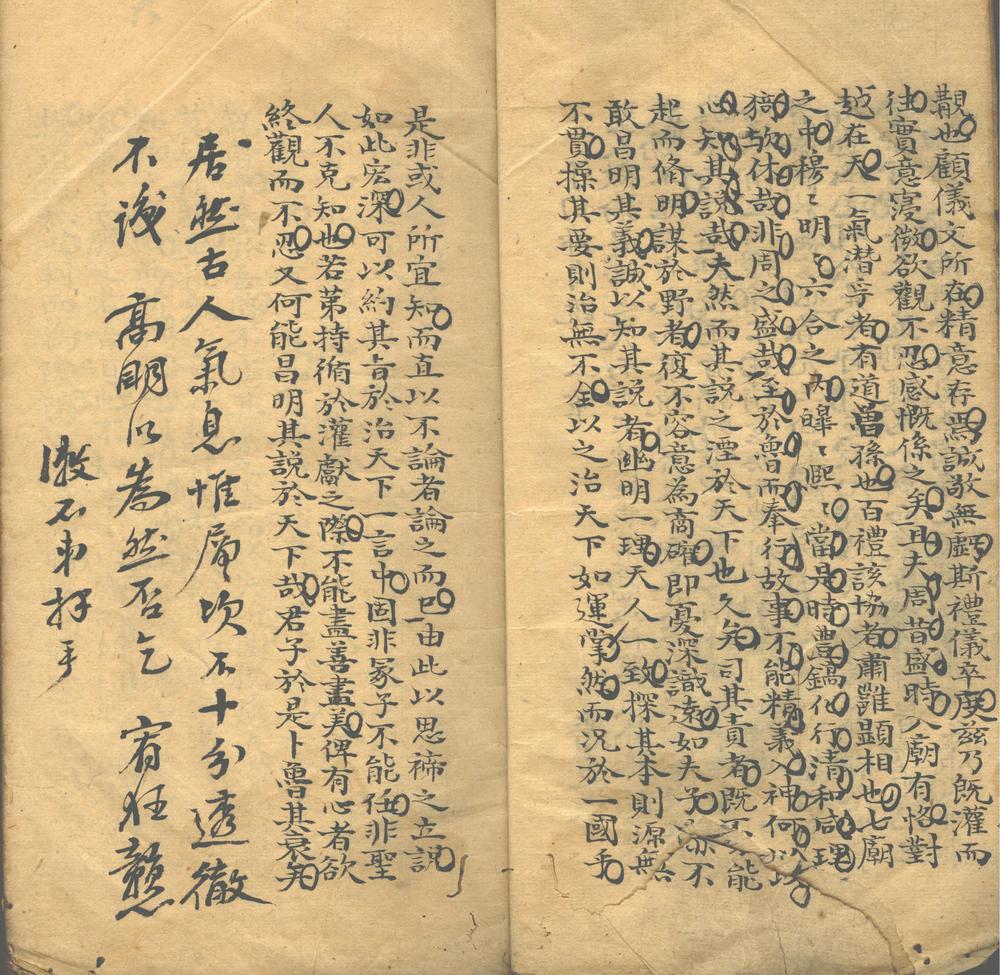 觀也顧儀文所在精意存焉誠敬無虧斯禮儀卒度茲乃既灌而
往實意寖微欲觀不忍感慨係之矣且夫周昔盛時入廟有恪對
越在天一氣潛孚者有道曾孫也百禮該協者肅雝顯相也七廟
之中穆〻明〻六合之內皞〻熙〻當是時豐鎬化行清和咸理
猗歟休哉非周之盛哉至於魯而奉行故事不能精義入神何以
心知其說哉夫然而其說之湮於天下也久矣司其責者既不能
起而脩明謀於野者復不容意為商確即憂深識遠如夫子亦不
敢昌明其義誠以知其説者幽明一理天人一致探其本則源無
不貫操其要則治無不全以之治天下如運掌然而況於一國乎
是非或人所宜知而直以不論者論之而已由此以思禘之立說
如此宏深可以約其旨於治天下一言中固非冢子不能任非聖
人不克知也若第持循於灌獻之際不能盡善盡美俾有心者欲
終觀而不忍又何能昌明其説於天下哉君子於是卜魯其衰矣
居然古人氣息惟 不十分透徹
不識 高明以為然否乞 宥狂戇
石弟拜手